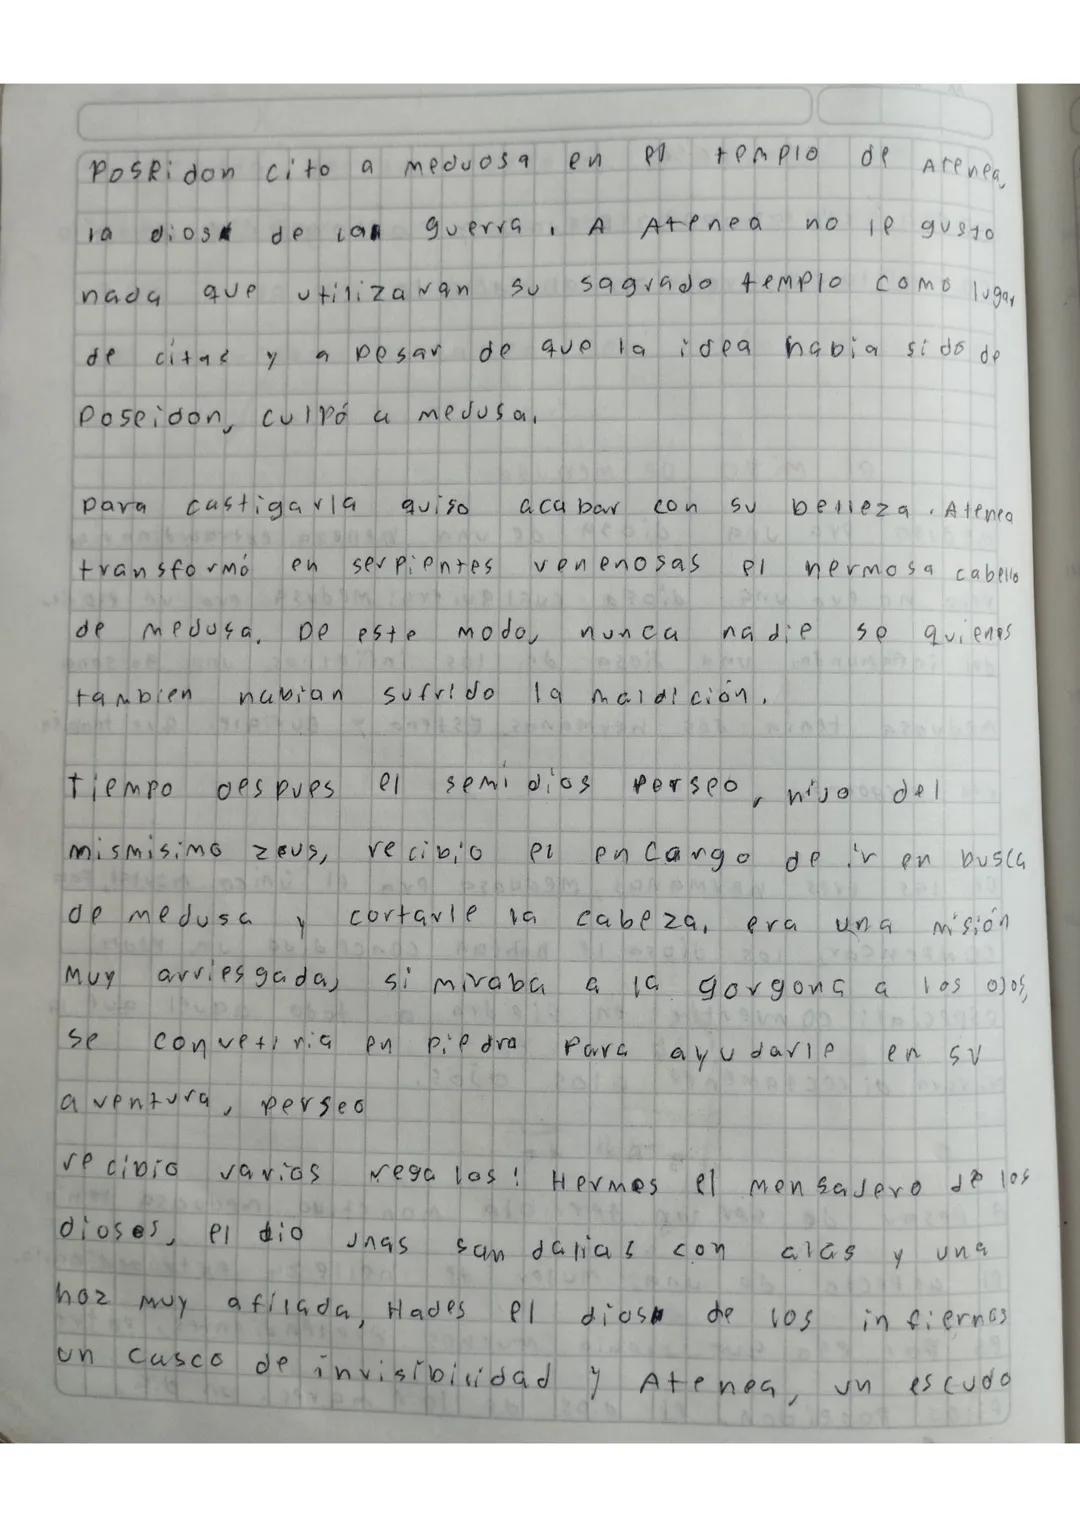 Poseidon cito a meduosa en el templo de Atenea,
la dios de la guerra, A Atenea no le gusto
nada que utilizaran su sagrado templo como lugar
de citas y a pesar de que la idea habia sido de
Poseidon, culpó a medusa.
para castigarla quiso acabar con su belleza. Atenea
transformó en serpientes venenosas el hermosa cabello
de medusa. De este modo, nunca nadie se quienes
tambien habian sufrido la maldición.
tiempo despues el semi dios perseo, hijo del
mismisimo zeus, recibio el encargo de ir en busca
de medusa y cortarle la cabeza, era una misión
muy arriesgada, si miraba a la gorgona a los ojos,
se convetiria en piedra para ayudarle en su
aventura, perseo
recibio varios regalos: Hermes el mensadero de los
dioses, el dio unas san dalias con alas y una
hoz muy afilada, Hades el dios de los infiernos
un casco de invisibilidad y Atenea, un escudo